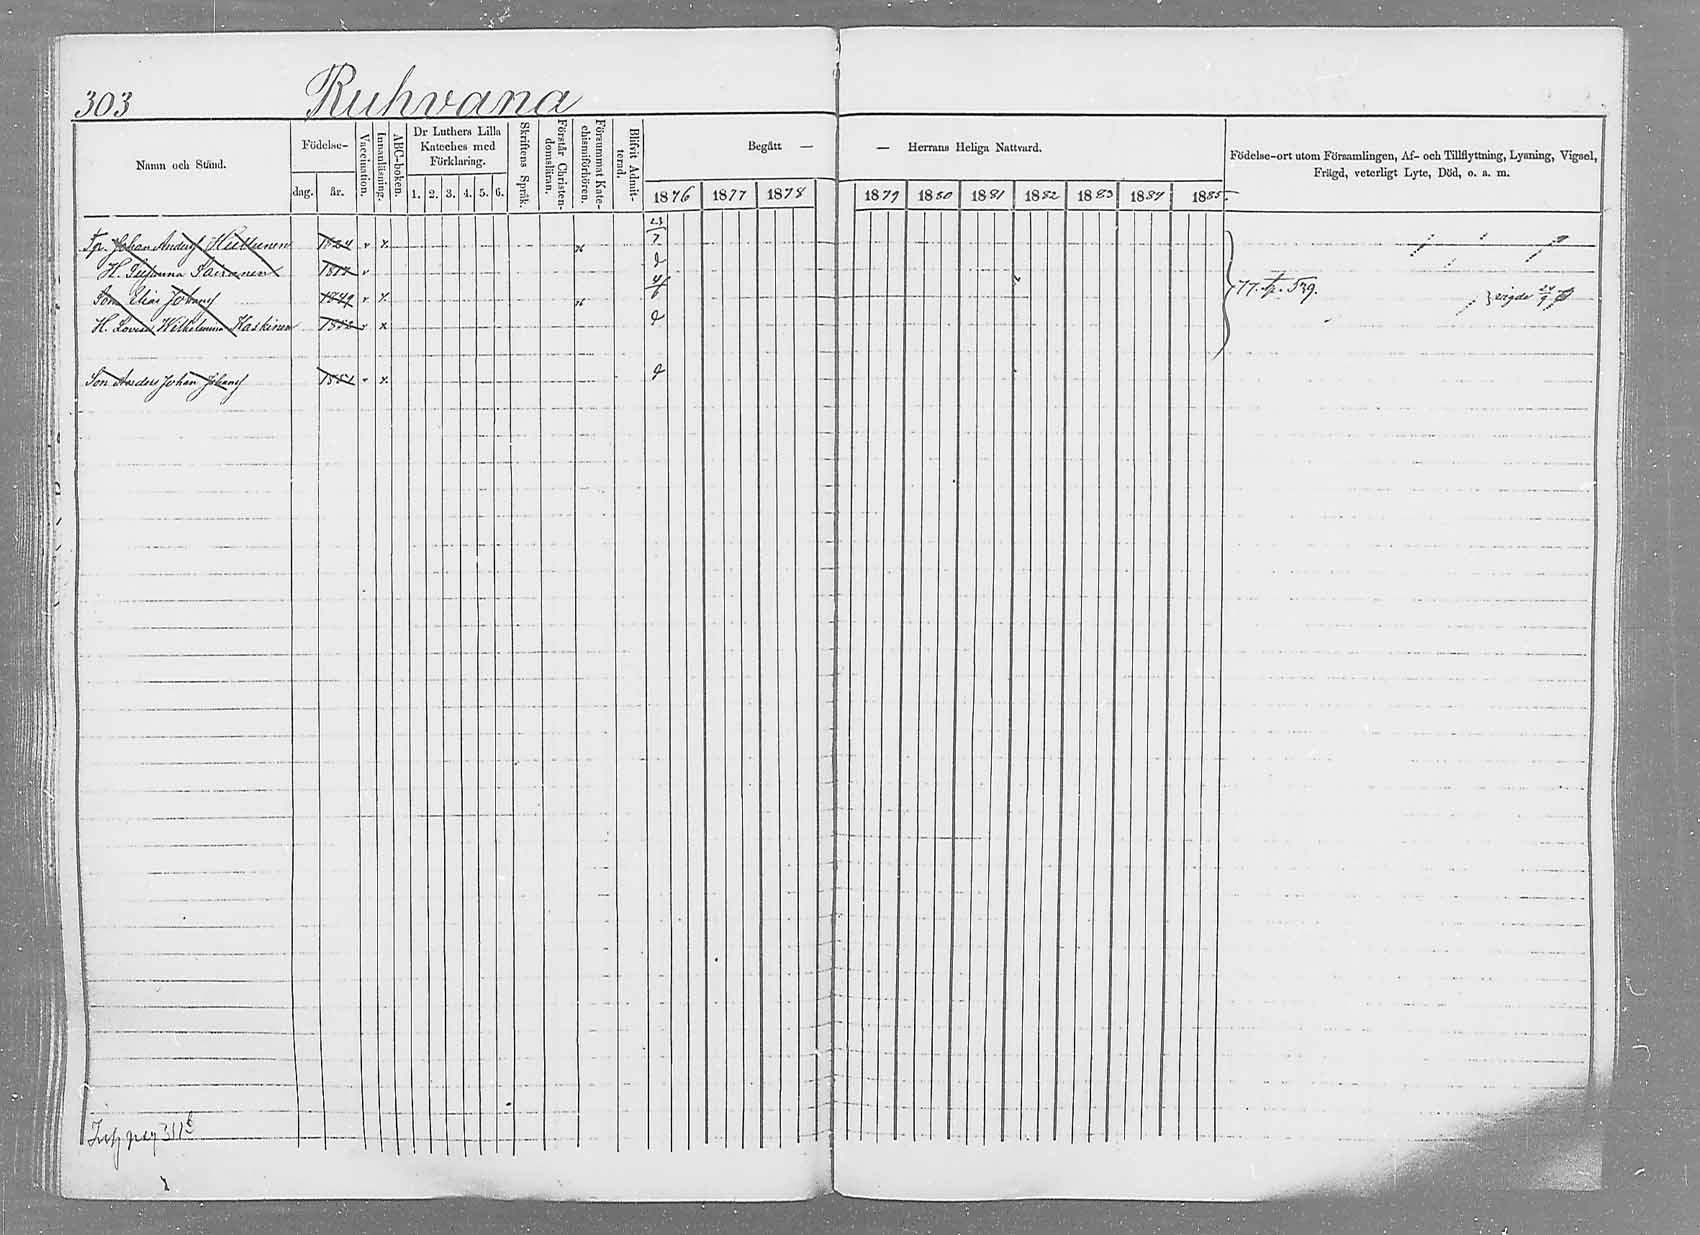 303 Ruhvana
Namn och Stånd.
Födelse-
dag. år.
Vaccination.
Innanläsning.
ABC-boken.
Dr Luthers Lilla
Kateches med
Förklaring.
1. 2. 3. 4. 5. 6.
Skriftens Språk.
Förstår Christen-
domsläran.
Försummat Kate-
chismiförhören.
Blifvit Admit-
terad.
Begått —
1876 1877 1878
— Herrans Heliga Nattvard.
1879 1880 1881 1882 1883 1884 1885
Födelse-ort utom Församlingen, Af- och Tillflyttning, Lysning, Vigsel,
Frägd, veterligt Lyte, Död, o. a. m.
Johan Hultunen 1824 v x x
H. 1817 v
Son Elias Johansf 1849 v x x 77. p. 539. vigde
H. Lovisa Wilhelmina Kaskinen v x
Son Anders Johan Johansf v x
pag 311